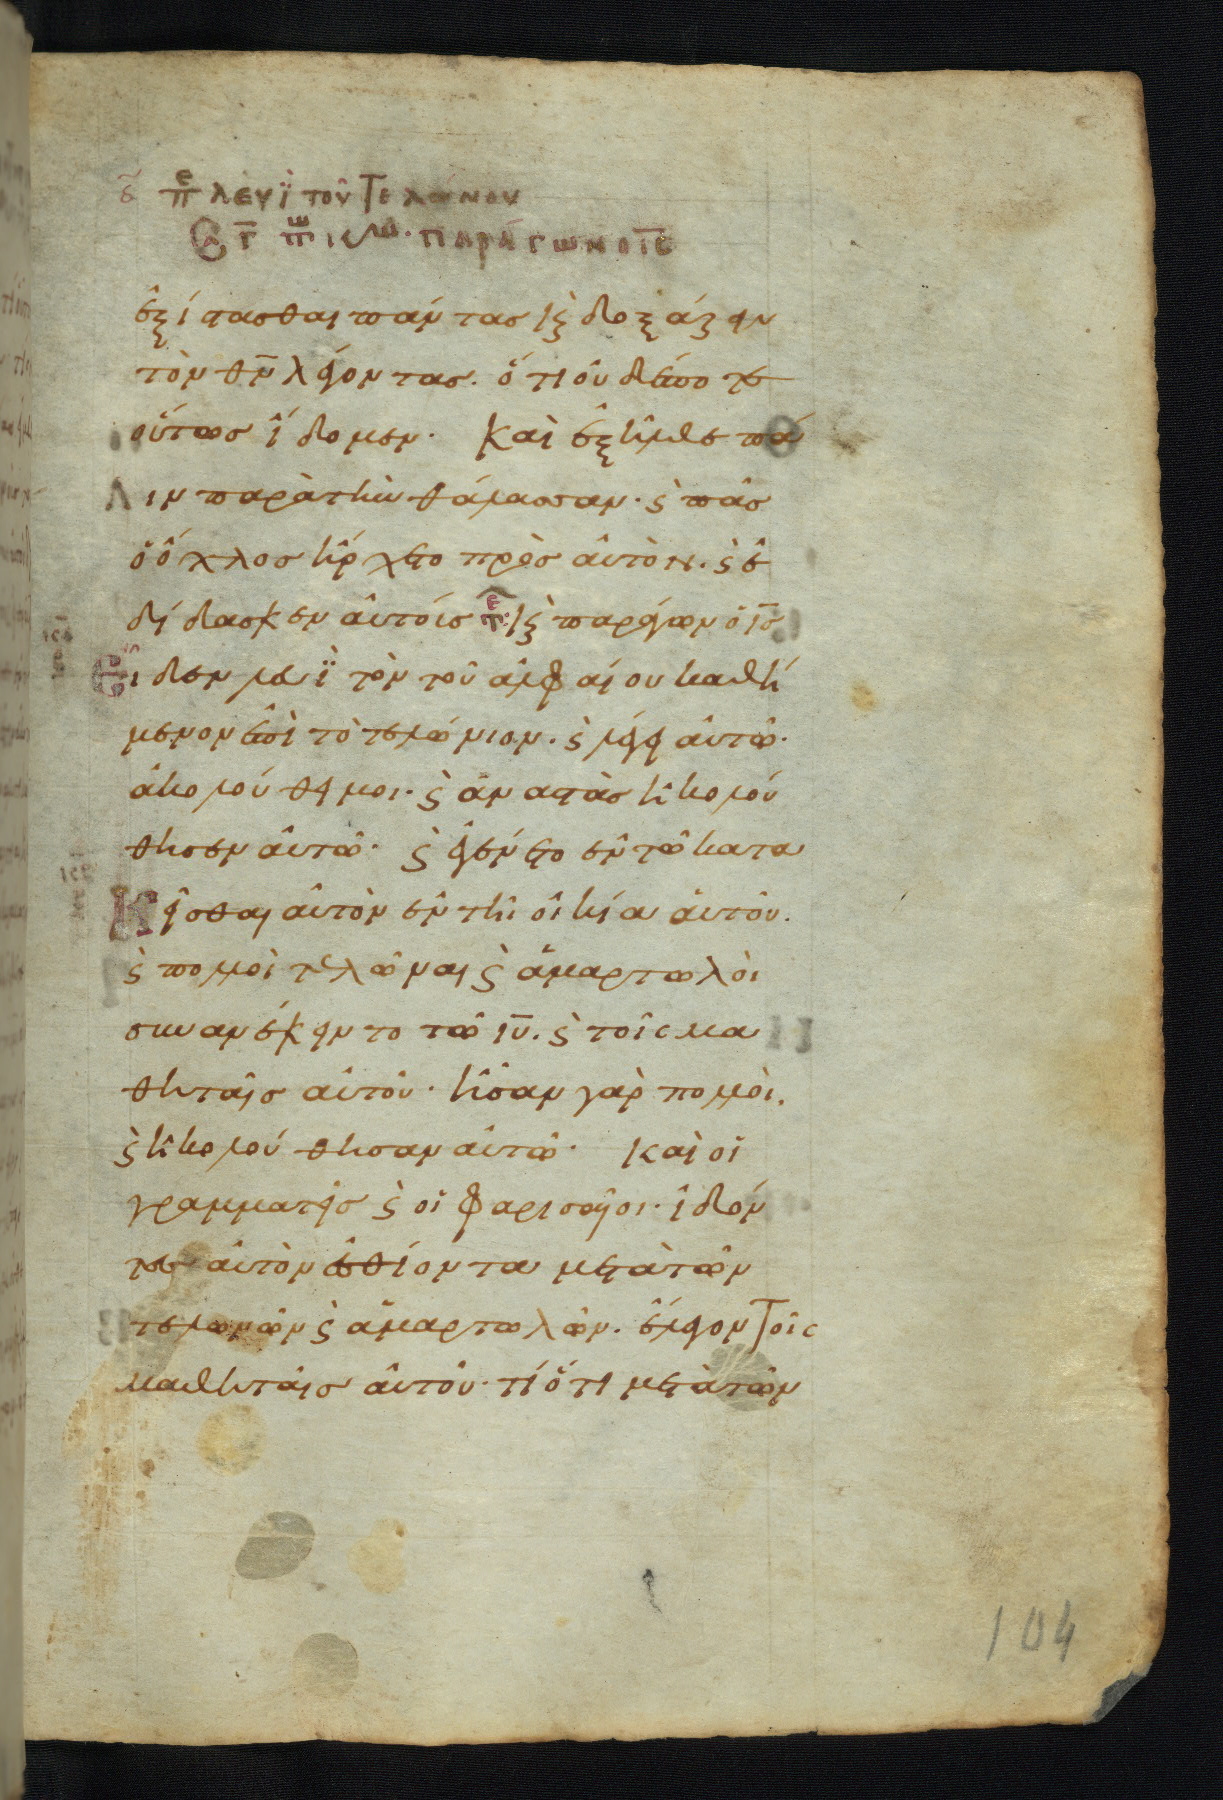 δ πε λευῒ τοῦ Τελώνου
παράγων ο ις
ἐξίστασθαι πάντας καὶ δοξάζειν
τὸν θν λέγοντας. ὅτι οὐδέποτε
οὕτως ἴδομεν. Καὶ ἐξῆλθε πά
λιν παρὰ τὴν θάλασσαν. ϛ πᾶσ
ὁ ὄχλος ἤρχετο πρὸς αὐτόν. ϛ ἐ
δίδασκεν αὐτοίς καὶ παράγων ὁ ις
ιδεν λευῒ τὸν τοῦ ἀλφαίου καθή
μενον ἐπὶ τὸ τελώνιον. ϛ λέγει αὐτῶ.
ἀκολούθει μοι. ϛ ἀναστὰς ἠκολού
θησεν αὐτῶ. ϛ ἐγένετο ἐν τῶ κατα
κεῖσθαι αὐτὸν ἐν τῆ οἰκία αὐτοῦ.
ϛ πολλοὶ τελῶναι ϛ ἁμαρτωλὸι
συνανέκειντο τῶ ιυ. ϛ τοῖς μα
θηταῖς αὐτοῦ. ἦσαν γὰρ πολλὸι.
ϛ ἠκολούθησαν αὐτῶ. Καὶ οἱ
γραμματεῖς ϛ οἱ φαρισαῖοι. ἰδόν
τες αὐτὸν ἐσθίοντα μετὰ τῶν
τελωνῶν ϛ ἁμαρτωλῶν. ἔλεγον Τοῖς
μαθηταῖς αὐτοῦ. τί ὅτι μετὰ τῶν
104